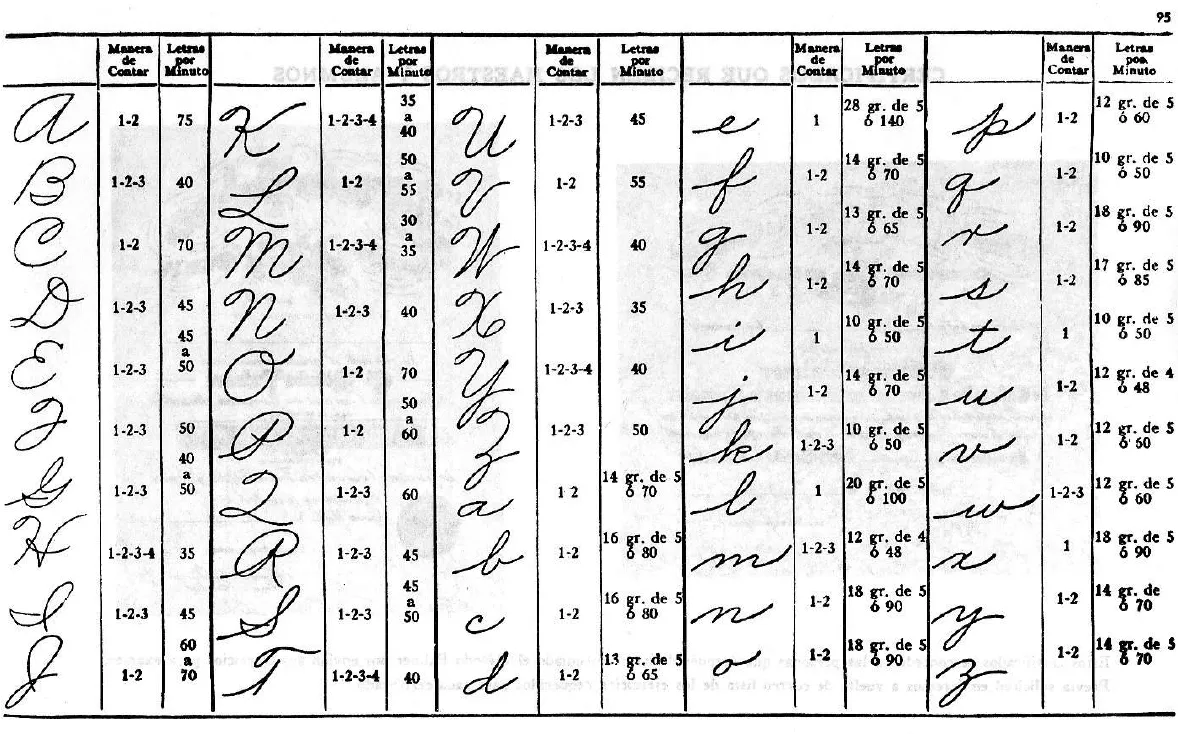 95
Manera de Contar Letras por Minuto Manera de Contar Letras por Minuto Manera de Contar Letras por Minuto Manera de Contar Letras por Minuto Manera de Contar Letras por Minuto
A 1-2 75 K 1-2-3-4 35 a 40 U 1-2-3 45 e 1 28 gr. de 5 ó 140 p 1-2 12 gr. de 5 ó 60
B 1-2-3 40 L 1-2 50 a 55 V 1-2 55 f 1-2 14 gr. de 5 ó 70 q 1-2 10 gr. de 5 ó 50
C 1-2 70 M 1-2-3-4 30 a 35 W 1-2-3-4 40 g 1-2 13 gr. de 5 ó 65 r 1-2 18 gr. de 5 ó 90
D 1-2-3 45 N 1-2-3 40 X 1-2-3 35 h 1-2 14 gr. de 5 ó 70 s 1-2 17 gr. de 5 ó 85
E 1-2-3 45 a 50 O 1-2 70 Y 1-2-3-4 40 i 1 10 gr. de 5 ó 50 t 1 10 gr. de 5 ó 50
F 1-2-3 50 P 1-2 50 a 60 Z 1-2-3 50 j 1-2 14 gr. de 5 ó 70 u 1-2 12 gr. de 4 ó 48
G 1-2-3 40 a 50 Q 1-2-3 60 a 1 2 14 gr. de 5 ó 70 k 1-2-3 10 gr. de 5 ó 50 v 1-2 12 gr. de 5 ó 60
H 1-2-3-4 35 R 1-2-3 45 b 1-2 16 gr. de 5 ó 80 l 1 20 gr. de 5 ó 100 w 1-2-3 12 gr. de 5 ó 60
I 1-2-3 45 S 1-2-3 45 a 50 c 1-2 16 gr. de 5 ó 80 m 1-2-3 12 gr. de 4 ó 48 x 1 18 gr. de 5 ó 90
J 1-2 60 a 70 T 1-2-3-4 40 d 1-2 13 gr. de 5 ó 65 n 1-2 18 gr. de 5 ó 90 y 1-2 14 gr. de ó 70
o 1-2 18 gr. de 5 ó 90 z 1-2 14 gr. de 5 ó 70